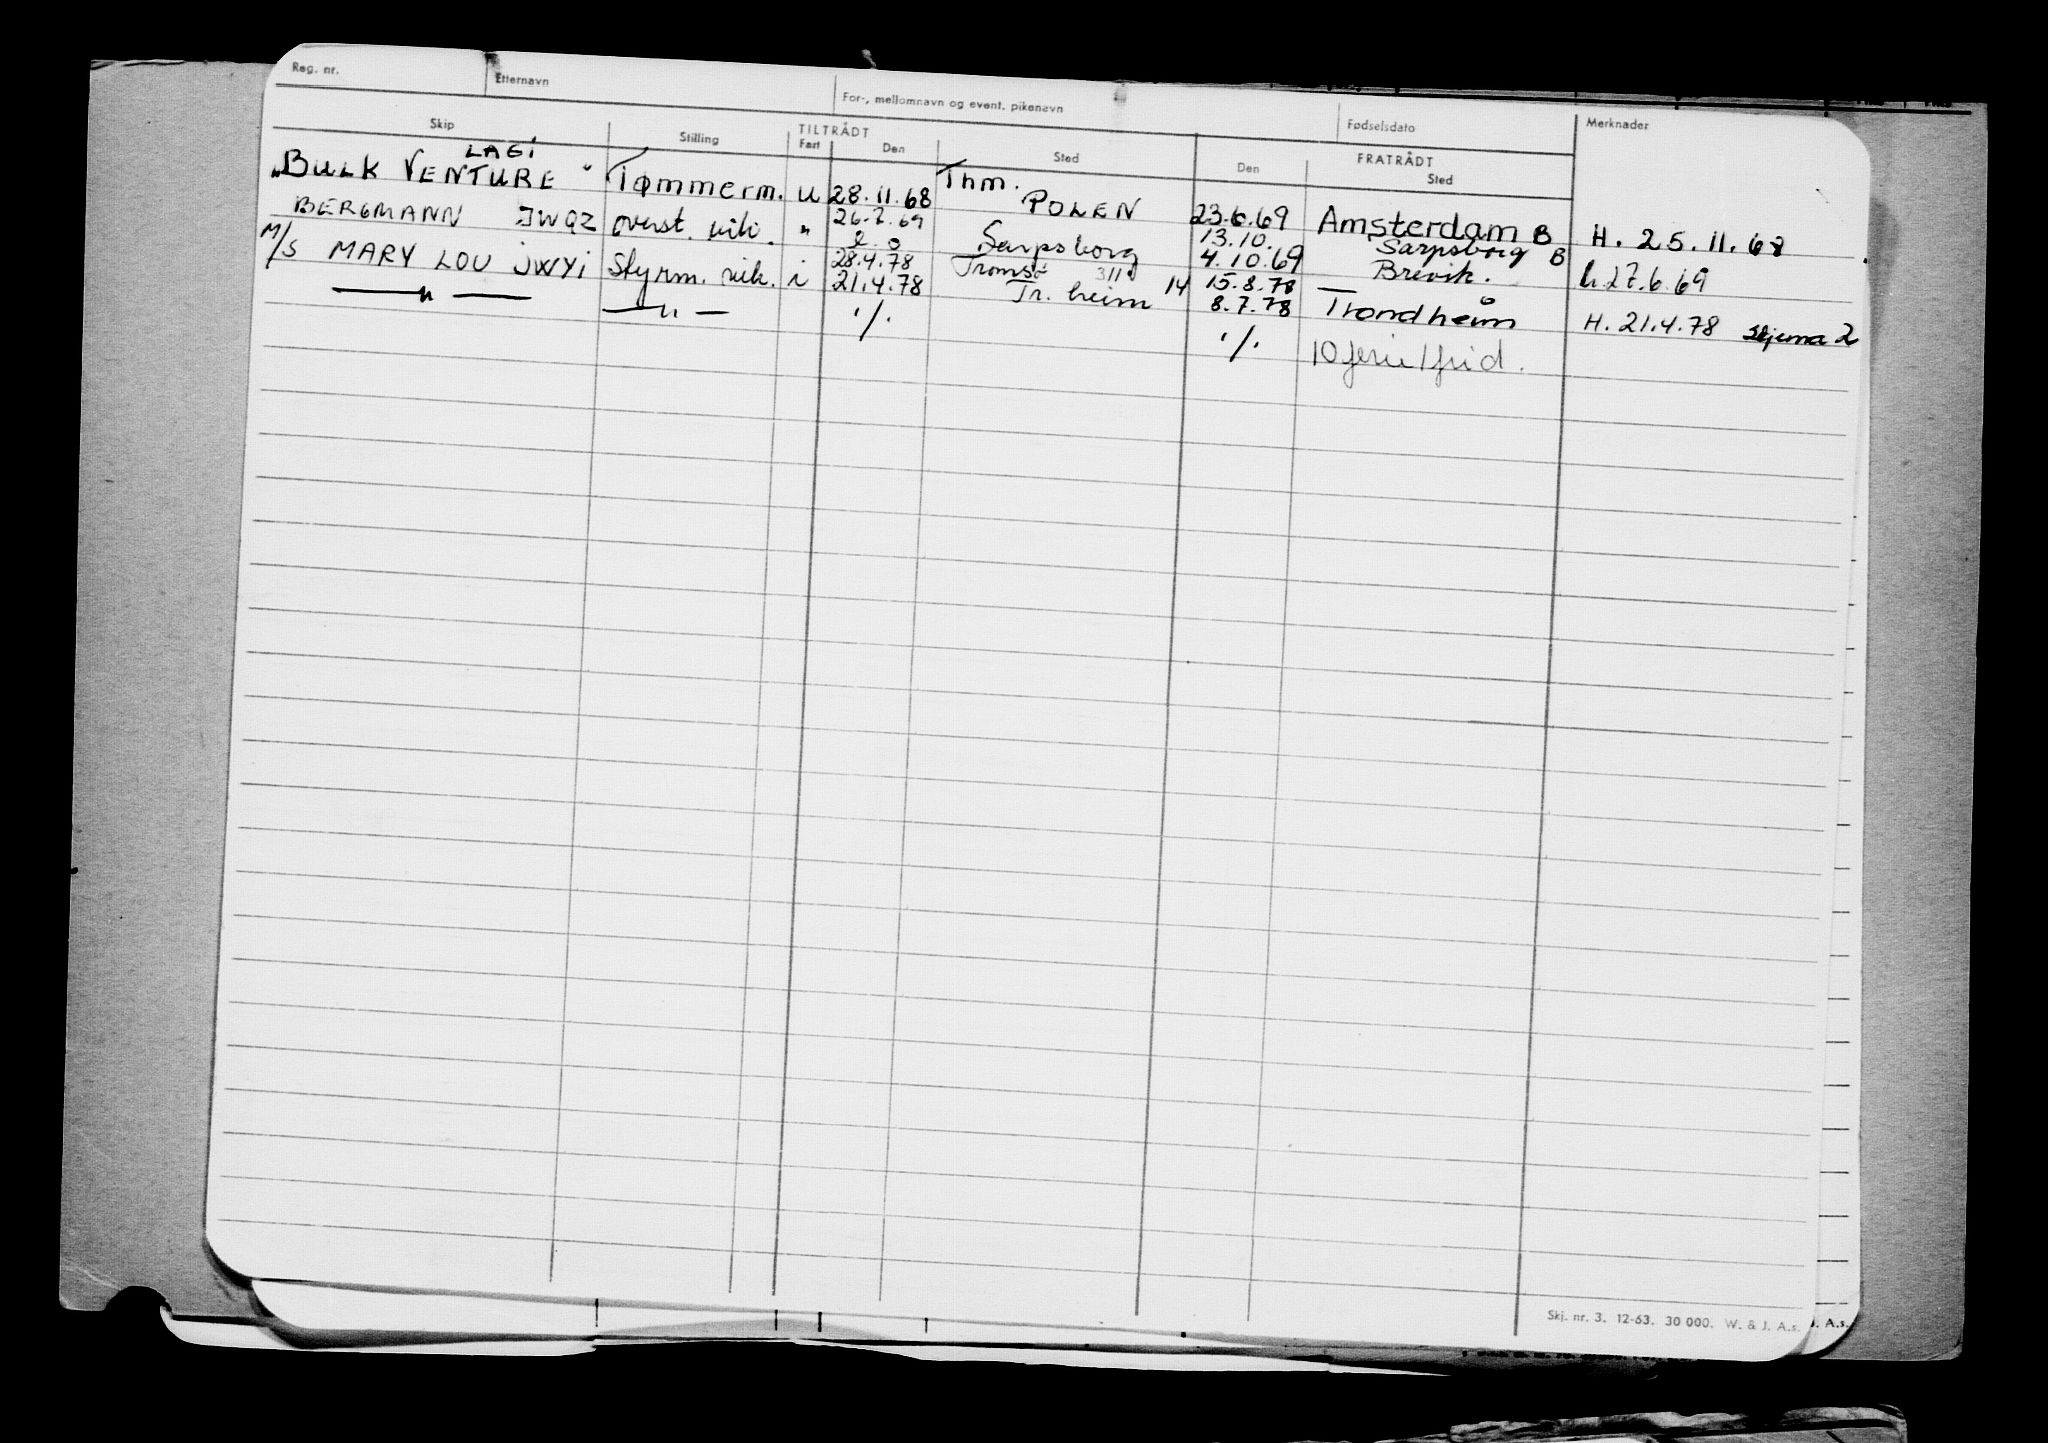 Reg. nr. Etternavn For-, mellomnavn og event. pikenavn Fødselsdato Merknader
Skip Stilling TILTRÅDT Fart Den Sted FRATRÅDT Den Sted
LAGI
"BULK VENTURE" Tømmerm. u 28.11.68 Thm. 23.6.69 Amsterdam B H. 25.11.68
BERGMANN JWQZ overst. " 26.7.69 POLEN 13.10. Sarpsborg B h 27.6.69
Sarpsborg 4.10.69 Brevik.
M/S MARY LOU JWYI Styrm. vik. i 28.4.78 Tromsø 3118 15.8.78
21.4.78 Tr. heim 14 8.7.78 Trondheim H. 21.4.78 Skjema 2
— " — — " — ./. ./. 10 ferie/frid.
Skj. nr. 3. 12-63. 30 000. W. & J. A.s. A.s.